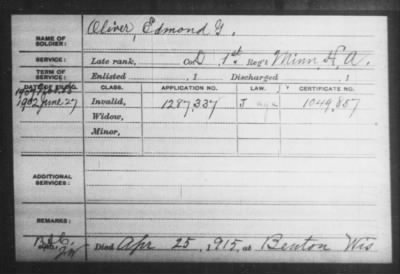 NAME OF SOLDIER: Oliver, Edmond G.
SERVICE: Late rank, Co. D 1st Reg't Minn. H. A.
TERM OF SERVICE: Enlisted , 1 Discharged , 1
DATE OF FILING. CLASS. APPLICATION NO. LAW. CERTIFICATE NO.
1902 June 27 Invalid, 1287,337 J 1049,857
Widow,
Minor,
ADDITIONAL SERVICES:
REMARKS:
Died Apr 25, 1915, at Benton Wis